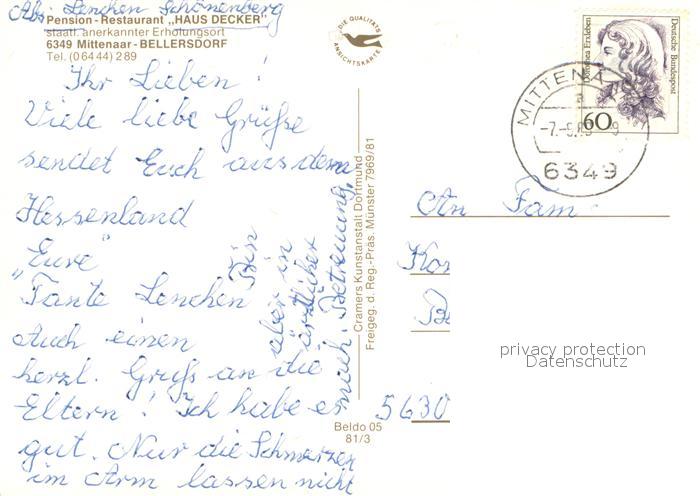 Abs. Lenchen Schönenberg
Pension - Restaurant „HAUS DECKER"
staatl. anerkannter Erholungsort
6349 Mittenaar - BELLERSDORF
Tel. (06444) 289
Ihr Lieben!
Viele liebe Grüße
sendet Euch aus dem
Hessenland
Eure
„Tante Lenchen"
Auch einen
herzl. Gruß an die
Eltern! Ich habe es
gut. Nur die Schmerzen
im Arm lassen nicht
nach. Bin
aber in
ärztlicher
Betreuung.
DIE QUALITÄTS
ANSICHTSKARTE
Cramers Kunstanstalt Dortmund
Freigeg. d. Reg.-Präs. Münster 7969/81
Beldo 05
81/3
Dorothea Erxleben
Deutsche Bundespost
60
MITTENAA
6349
An Fam
Kor
Be
5630
privacy protection
Datenschutz